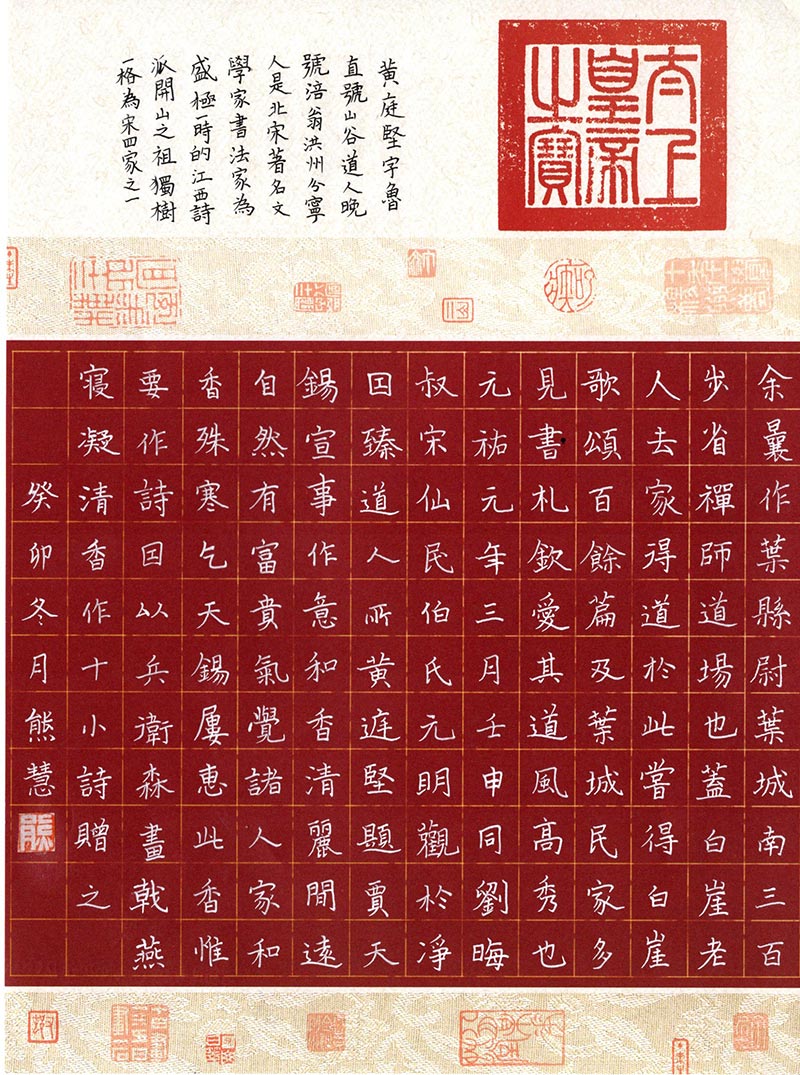 太上
皇帝
之寶
黄庭堅字魯
直號山谷道人晚
號涪翁洪州分寧
人是北宋著名文
學家書法家為
盛極一時的江西詩
派開山之祖獨樹
一格為宋四家之一
余曩作葉縣尉葉城南三百
步省禪師道場也蓋白崖老
人去家得道於此嘗得白崖
歌頌百餘篇及葉城民家多
見書札欽愛其道風高秀也
元祐元年三月壬申同劉晦
叔宋仙民伯氏元明觀於凈
因臻道人所黄庭堅題賈天
錫宣事作意和香清麗閒遠
自然有富貴氣覺諸人家和
香殊寒乞天錫屢惠此香惟
要作詩因以兵衛森畫戟燕
寢凝清香作十小詩贈之
癸卯冬月熊慧
熊